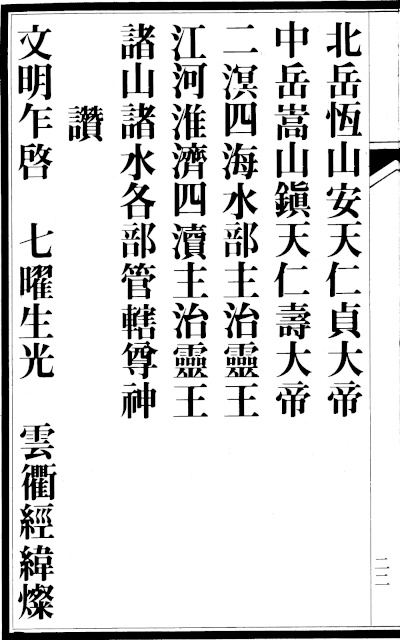 北岳恆山安天仁貞大帝
中岳嵩山鎭天仁壽大帝
二溟四海水部主治靈王
江河淮濟四瀆主治靈王
諸山諸水各部管轄尊神
讚
文明乍啓　七曜生光　雲衢經緯燦
二二